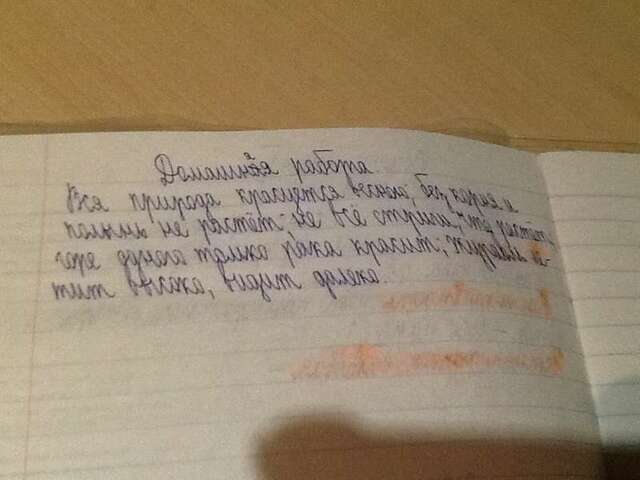 Домашняя работа.
Вся природа красуется весною; без корня и
полынь не растёт; не всё стриги, что растёт;
горе рака красит; журавль ле-
тит высоко, видит далеко.